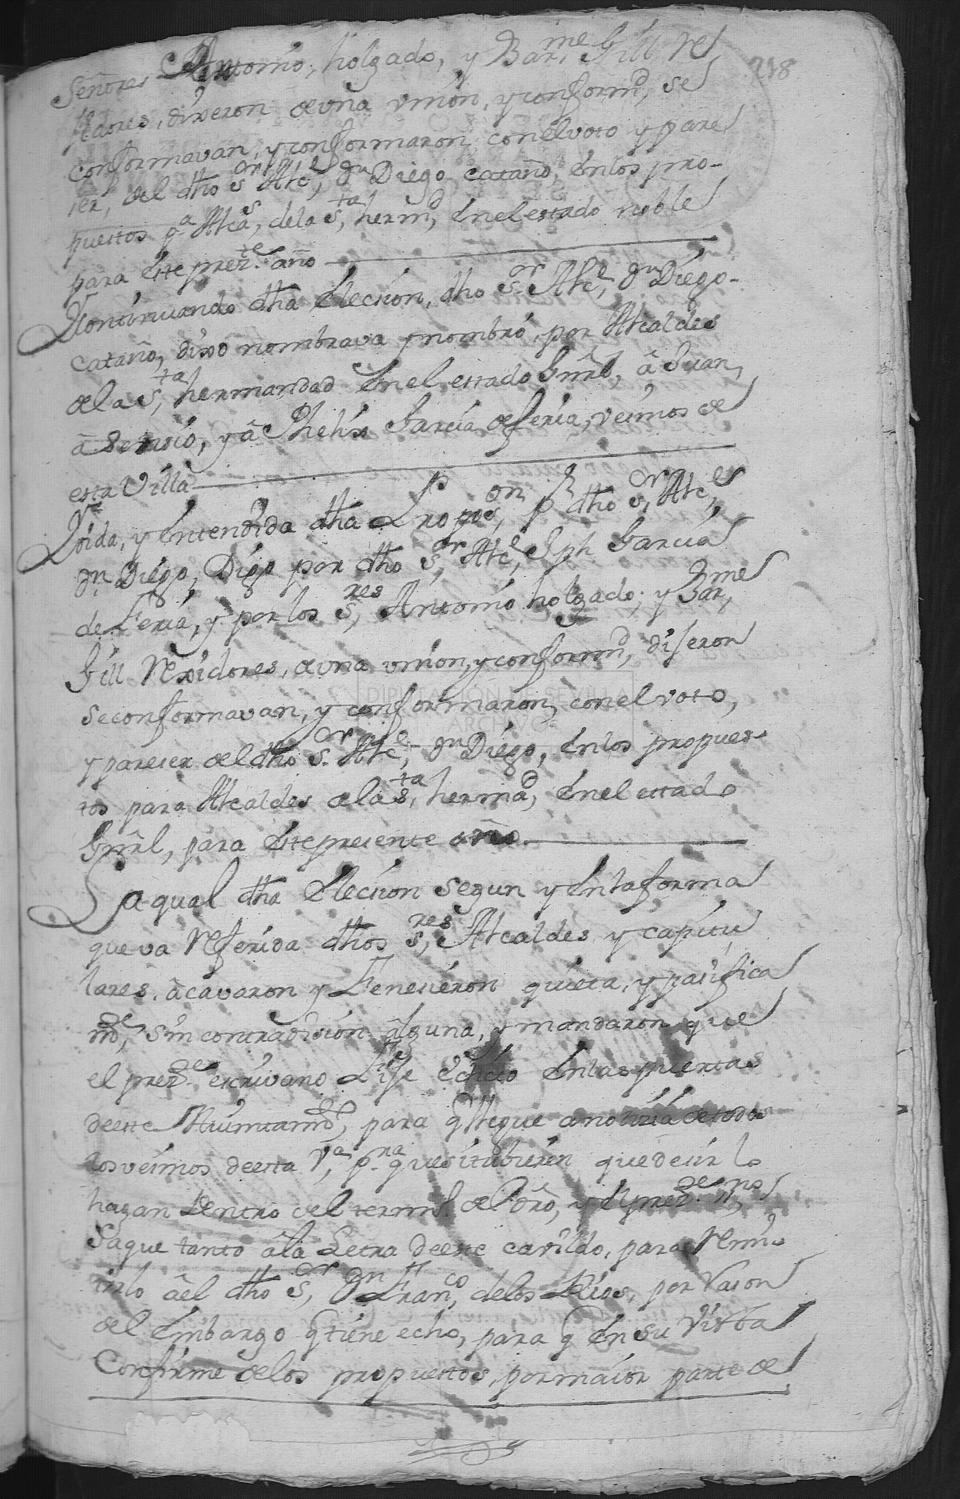 218
Señores Antonio, holgado, y Bar.me Gill Re
xidores, dixeron de vna vnion, y conform.d, se
conformavan, y conformaron con el voto y pare
ser, del dho s.or Alc.e, d.n Diego cataño, En los pro-
puestos p.a Alca.s, de la s.ta, herm.d, En el estado noble
para Este pres.te año
Continuando dha Eleccion, dho s.or Alc.e, d.n Diego-
cataño, dixo nombrava y nombró, por Alcaldes
de la s.ta, hermandad En el estado Gnrl, â Juan
y â Phelix Garcia de feria, vecinos de
esta Villa
Y oida, y Entendida dha Propos.on p.r dho s.or Alc.e
d.n Diego, Digo por dho s.or Alc.e Jph Garcia
de Feria, y por los s.res Antonio holgado; y Bar.me
Gill Rexidores, de vna vnion, y conform.d, diseron
se conformavan, y conformaron, con el voto,
y pareser del dho s.or Alc.e, d.n Diego, En los propues-
tos para Alcaldes de la s.ta, herma.d, En el estado
Gnrl, para Este presente año
La qual dha Eleccion segun y En la forma
que va Referida dhos s.res, Alcaldes y capitu
lares, acavaron y Fenecieron quieta, y pacifica
m.te, sin contradision alguna, y mandaron que
el pres.te escrivano Fije Edicto En las puertas
de este Aiuntam.to, para q llegue a noticia de todos
los vecinos de esta V.a, p.ra que si tubieren que decir lo
hagan Dentro del termi.o del dro, y el pres.te ss.no
Saque tanto â la Letra de este cavildo, para Remi
tirlo âel dho s.or D.n Fran.co, de los Rios, por Rason
del Embargo q tiene echo, para q En su Vista
Confirme de los propuestos, por maior parte de
DIPUTACIÓN DE SEVILLA
ARCHIVO